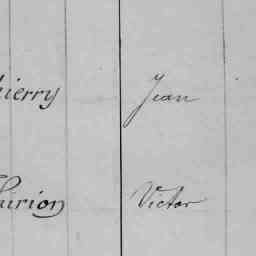 hierry Jean
hirion Victor